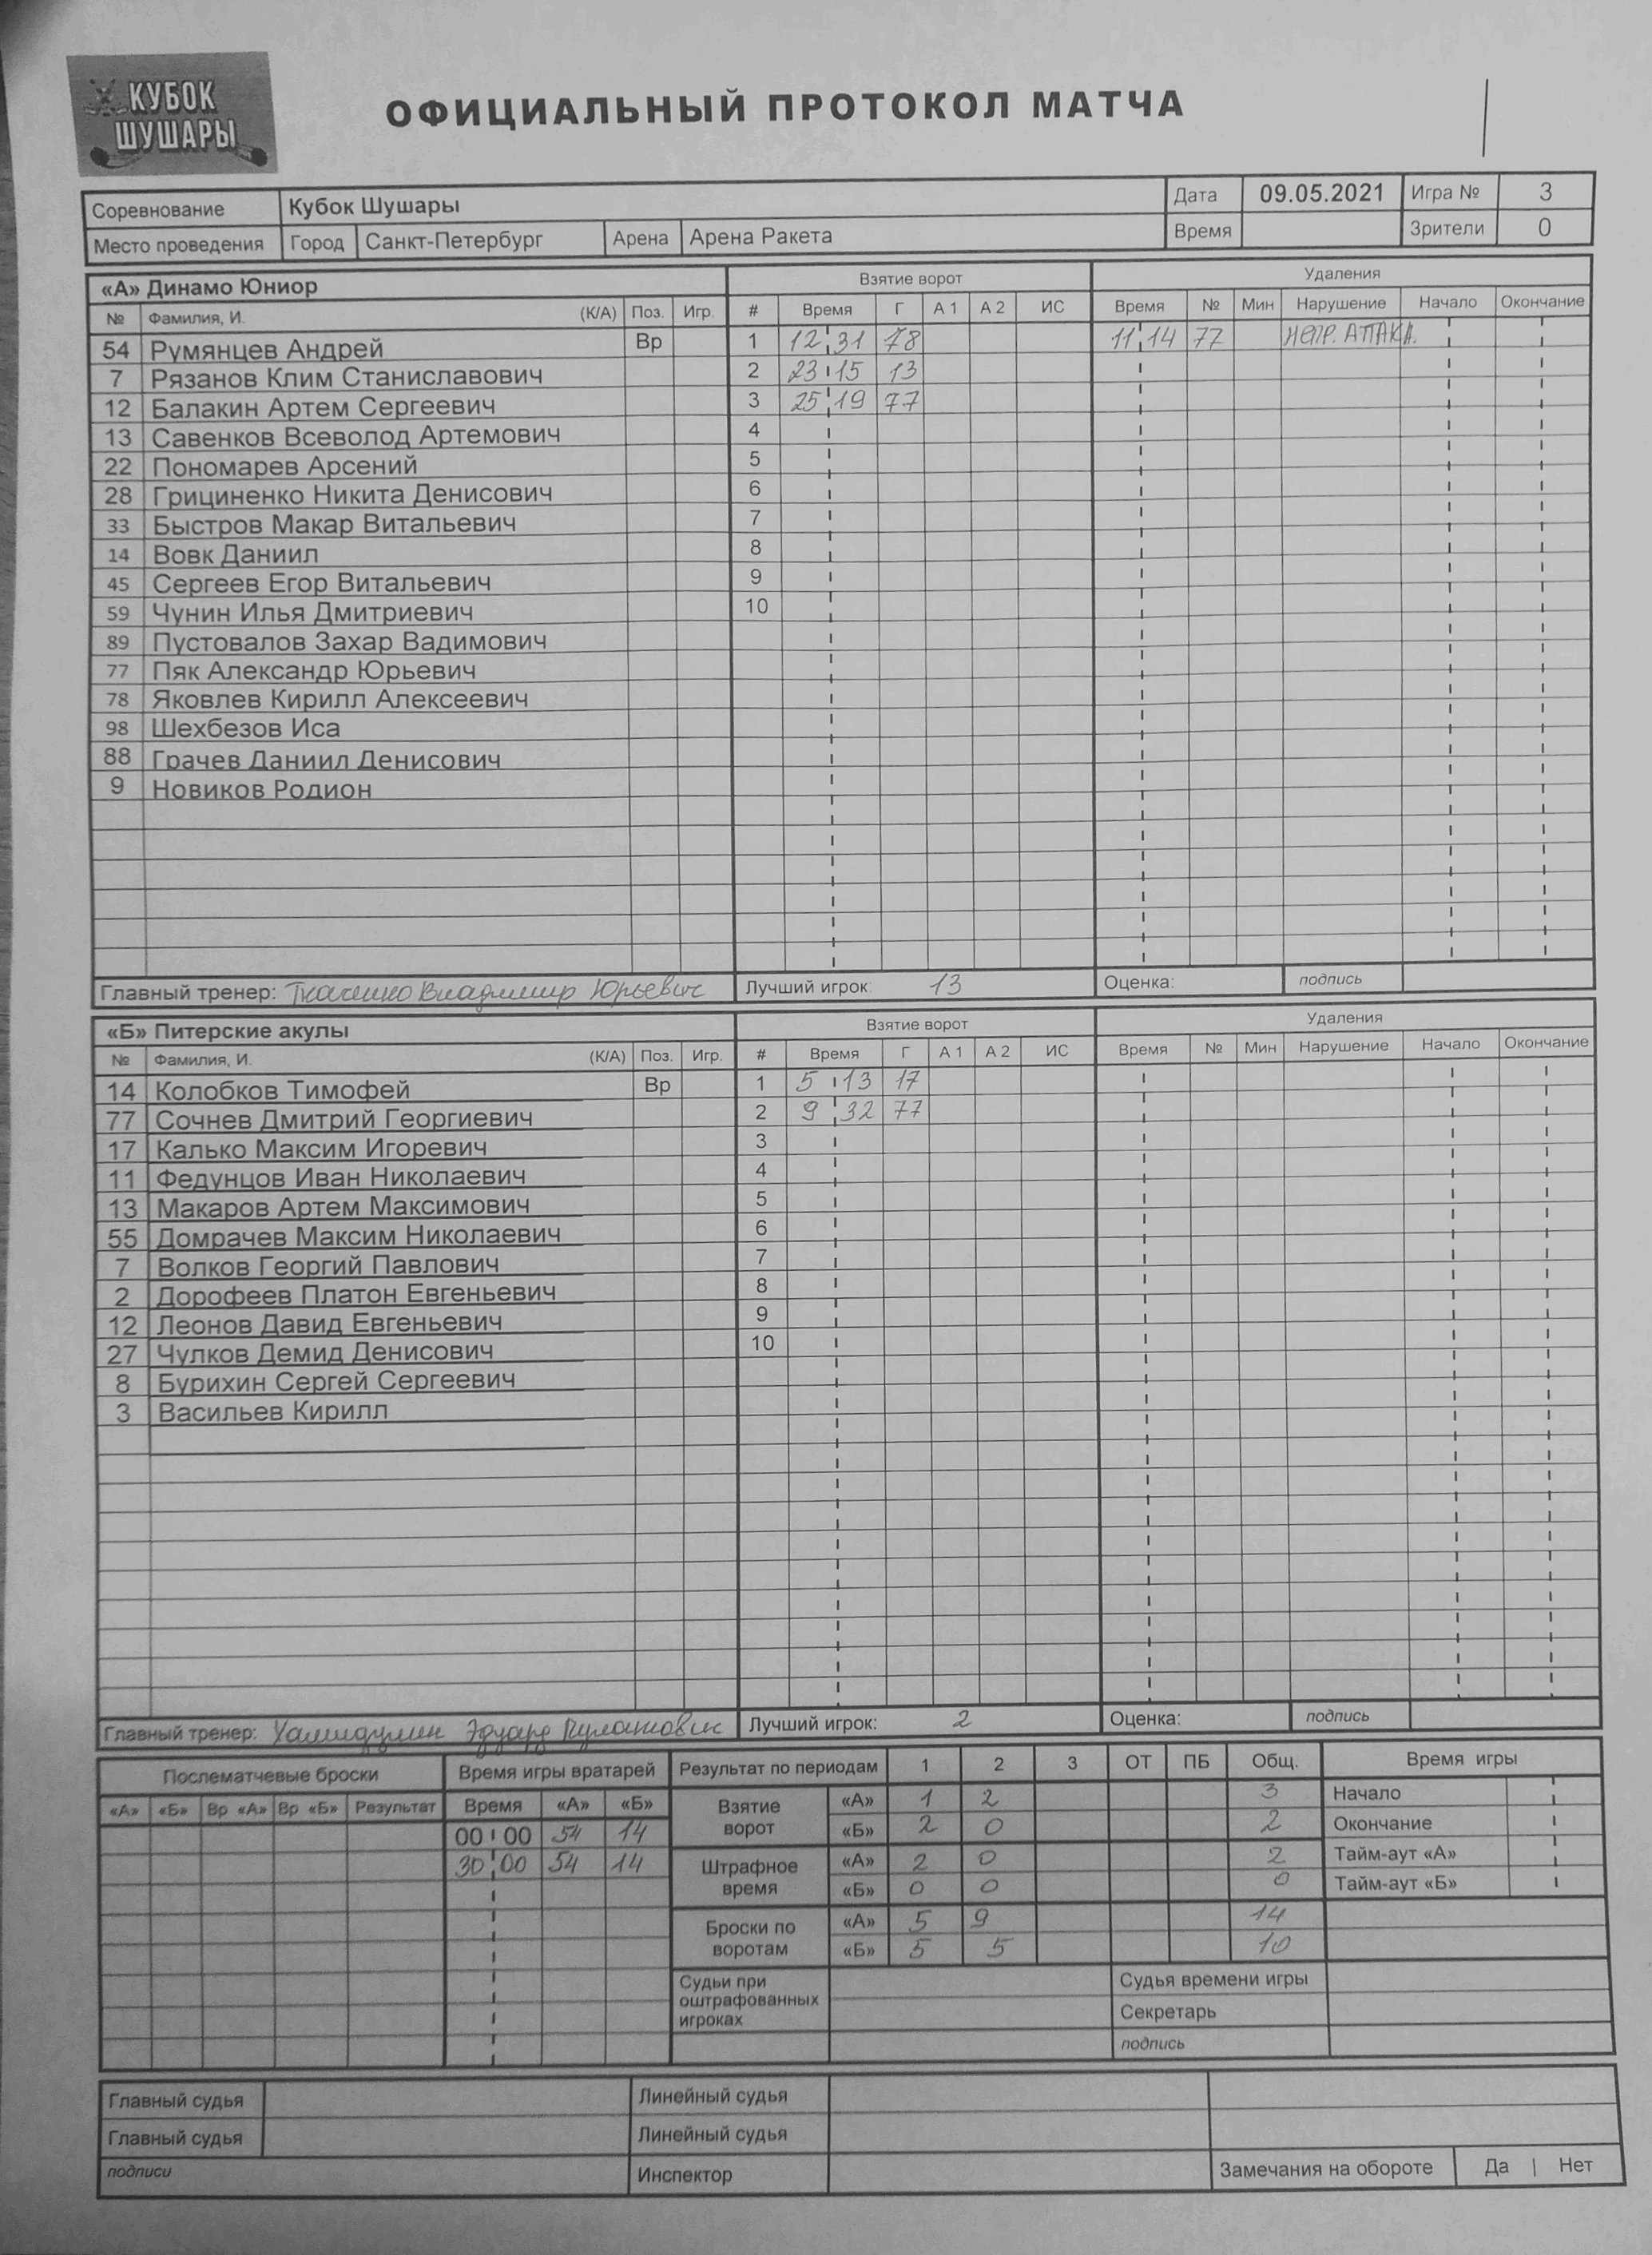 КУБОК
ШУШАРЫ
ОФИЦИАЛЬНЫЙ ПРОТОКОЛ МАТЧА
Соревнование Кубок Шушары Дата 09.05.2021 Игра № 3
Место проведения Город Санкт-Петербург Арена Арена Ракета Время Зрители 0
«А» Динамо Юниор Взятие ворот Удаления
№ Фамилия, И. (К/А) Поз. Игр. # Время Г А 1 А 2 ИС Время № Мин Нарушение Начало Окончание
54 Румянцев Андрей Вр 1 12 31 78 11 14 77 НЕПР. АТАКА.
7 Рязанов Клим Станиславович 2 23 15 13
12 Балакин Артем Сергеевич 3 25 19 77
13 Савенков Всеволод Артемович 4
22 Пономарев Арсений 5
28 Грициненко Никита Денисович 6
33 Быстров Макар Витальевич 7
14 Вовк Даниил 8
45 Сергеев Егор Витальевич 9
59 Чунин Илья Дмитриевич 10
89 Пустовалов Захар Вадимович
77 Пяк Александр Юрьевич
78 Яковлев Кирилл Алексеевич
98 Шехбезов Иса
88 Грачев Даниил Денисович
9 Новиков Родион
Главный тренер: Ткаченко Владимир Юрьевич Лучший игрок: 13 Оценка: подпись
«Б» Питерские акулы Взятие ворот Удаления
№ Фамилия, И. (К/А) Поз. Игр. # Время Г А 1 А 2 ИС Время № Мин Нарушение Начало Окончание
14 Колобков Тимофей Вр 1 5 13 17
77 Сочнев Дмитрий Георгиевич 2 9 32 77
17 Калько Максим Игоревич 3
11 Федунцов Иван Николаевич 4
13 Макаров Артем Максимович 5
55 Домрачев Максим Николаевич 6
7 Волков Георгий Павлович 7
2 Дорофеев Платон Евгеньевич 8
12 Леонов Давид Евгеньевич 9
27 Чулков Демид Денисович 10
8 Бурихин Сергей Сергеевич
3 Васильев Кирилл
Главный тренер: Хамидулин Эдуард Пулатович Лучший игрок: 2 Оценка: подпись
Послематчевые броски Время игры вратарей Результат по периодам 1 2 3 ОТ ПБ Общ. Время игры
«А» «Б» Вр «А» Вр «Б» Результат Время «А» «Б» Взятие ворот «А» 1 2 3 Начало
00 00 54 14 «Б» 2 0 2 Окончание
30 00 54 14 Штрафное время «А» 2 0 2 Тайм-аут «А»
«Б» 0 0 0 Тайм-аут «Б»
Броски по воротам «А» 5 9 14
«Б» 5 5 10
Судьи при оштрафованных игроках Судья времени игры
Секретарь
подпись
Главный судья Линейный судья
Главный судья Линейный судья
подписи Инспектор Замечания на обороте Да | Нет